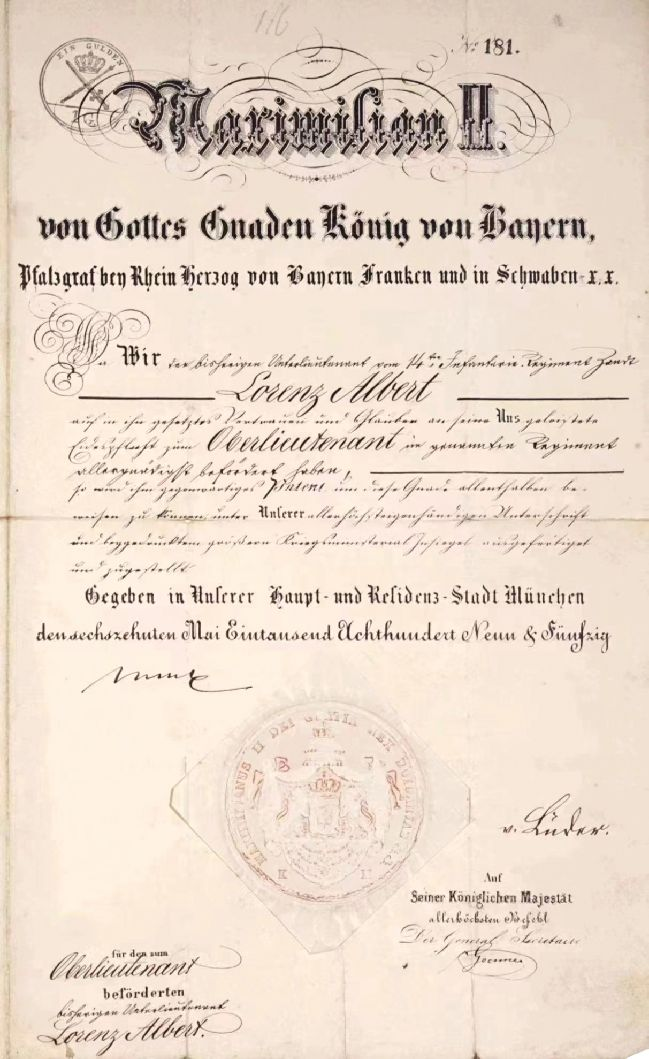 176
No. 181.
EIN GULDEN
Maximilian II.
von Gottes Gnaden König von Bayern,
Pfalzgraf bey Rhein Herzog von Bayern Franken und in Schwaben x. x.
Da Wir den bisherigen Unterlieutenant vom 14ten Infanterie-Regiment Zandt
Lorenz Albert
auf in ihn gesetztes Vertrauen und Glauben an seine Uns geleistete
Eidespflicht zum Oberlieutenant in genannten Regiment
allergnädigst befördert haben,
so wird ihm gegenwärtiges Patent um diese Gnade allenthalben be-
weisen zu können, unter Unserer allerhöchsteigenhändigen Unterschrift
und beygedrucktem größern Kriegsministerial Insiegel ausgefertiget
und zugestellt
Gegeben in Unserer Haupt- und Residenz-Stadt München
den sechszehnten Mai Eintausend Achthundert Neun & Fünfzig
Max
II DEI REX
v. Lüder.
Auf
Seiner Königlichen Majestät
allerhöchsten Befehl
Der General Secretaire
für den zum
Oberlieutenant
beförderten
bisherigen Unterlieutenant
Lorenz Albert.